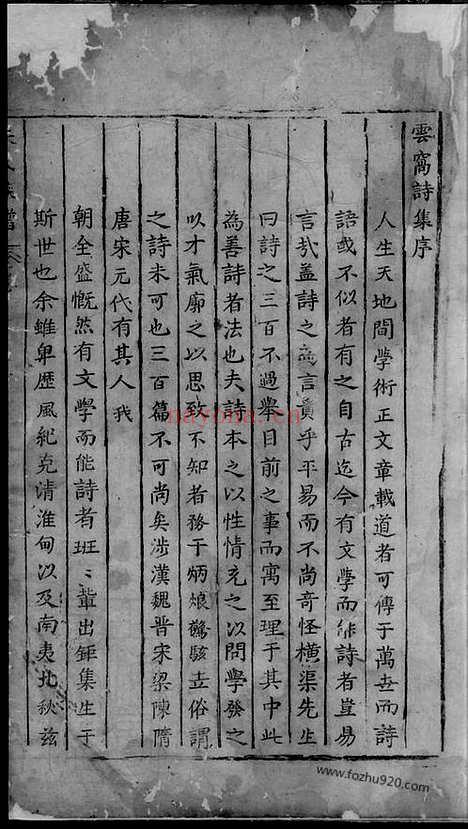 雲窩詩集序
人生天地間學術正文章載道者可傳于萬世而詩
語或不似者有之自古迄今有文學而能詩者豈易
言哉蓋詩之為言貴乎平易而不尚奇怪橫渠先生
曰詩之三百不過舉目前之事而寓至理于其中此
為善詩者法也夫詩本之以性情充之以問學發之
以才氣廓之以思致不知者務于炳娘驚駭世俗謂
之詩未可也三百篇不可尚矣涉漢魏晉宋梁陳隋
唐宋元代有其人我
朝全盛慨然有文學而能詩者班〻輩出鉦集生于
斯世也余雖卑歷風紀克清淮甸以及南夷北狄茲
nayona.cn
www.fozhu920.com